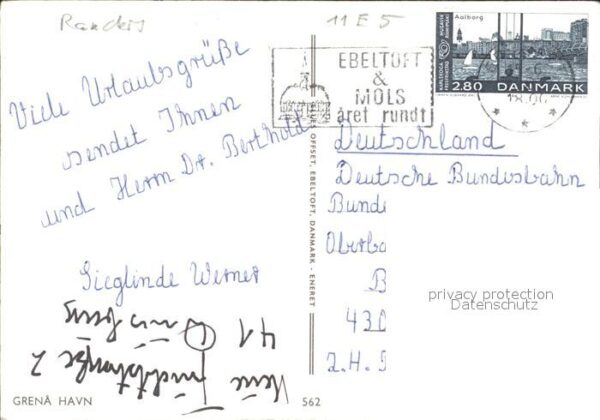 Randers
11 E 5
Aalborg
2.80 DANMARK
EBELTOFT
&
MOLS
året rundt
Viele Urlaubsgrüße
sendet Ihnen
und Herrn Dr. Berthold
Sieglinde Werner
Deutschland
Deutsche Bundesbahn
Bunde
Oberba
B
430
z.H.
privacy protection
Datenschutz
OFFSET, EBELTOFT, DANMARK - ENERET
41
GRENÅ HAVN
562